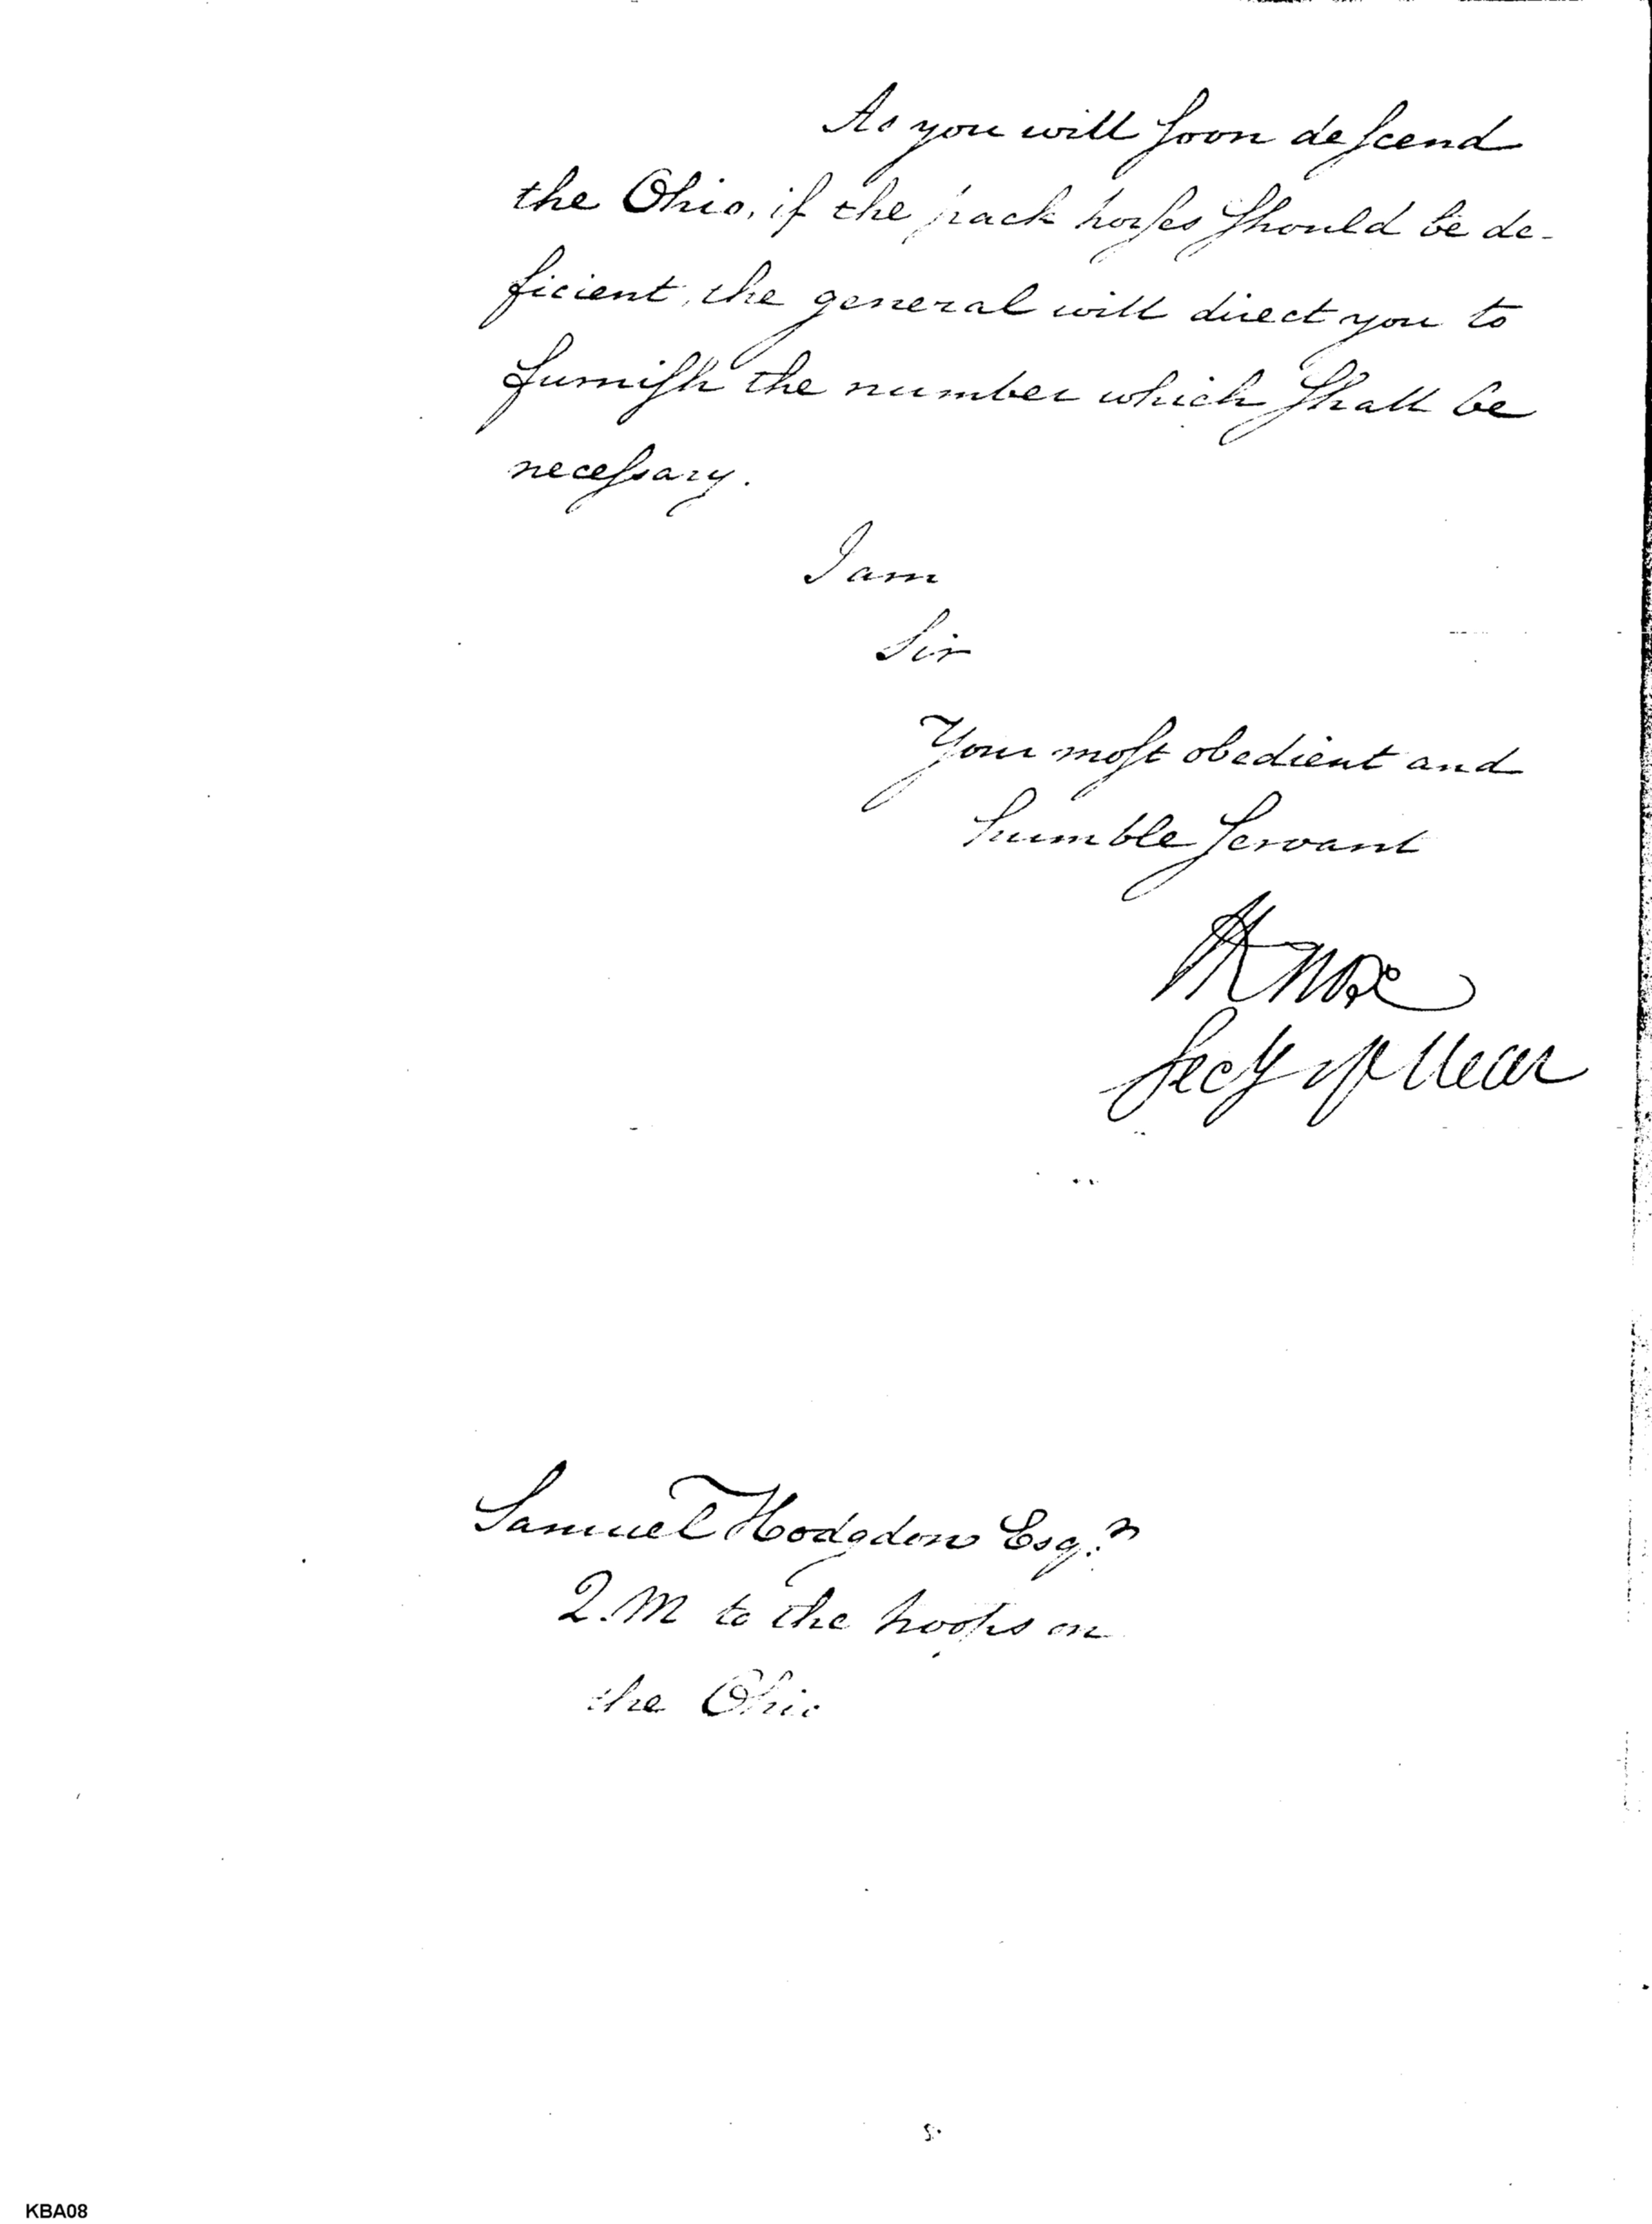 As you will soon descend
the Ohio, if the pack horses should be de-
ficient, the general will direct you to
furnish the number which shall be
necessary.
I am
Sir
Your most obedient and
humble servant
HKnox
Secy of War
Samuel Hodgdon Esqr.
Q.M to the troops on
the Ohio
KBA08